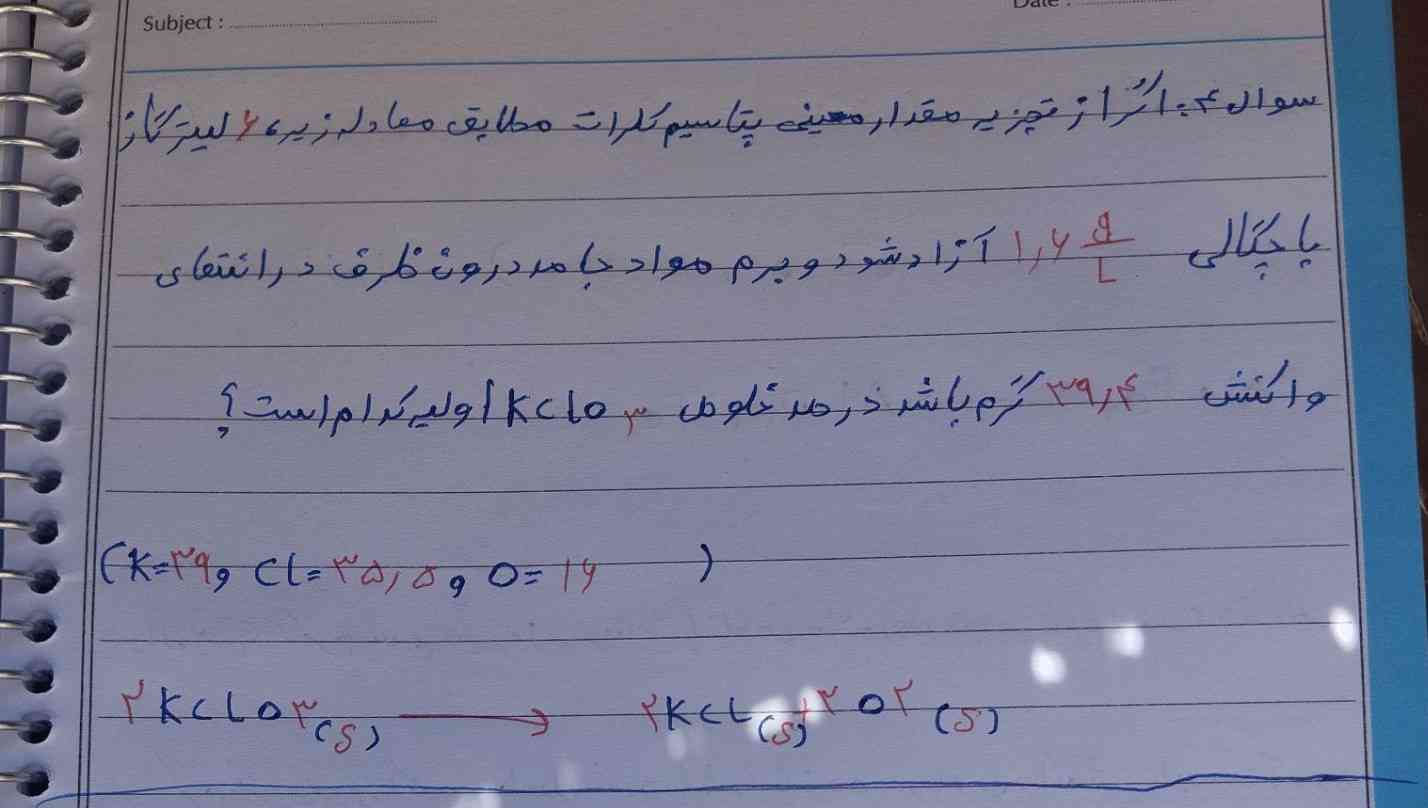 Subject :
Date :
سوال ۴۰: اگر از تجزیه مقدار معینی پتاسیم کلرات مطابق معادله زیر، ۶ لیتر گاز
با چگالی ۱٫۶ g/L آزاد شود و جرم مواد جامد درون ظرف در انتهای
واکنش ۳۹٫۴ گرم باشد درصد خلوص KClO۳ اولیه کدام است؟
(K=۳۹, CL=۳۵٫۵, O=۱۶ )
۲KCLO۳(s) → ۲KCL(s)+۳O۲(s)